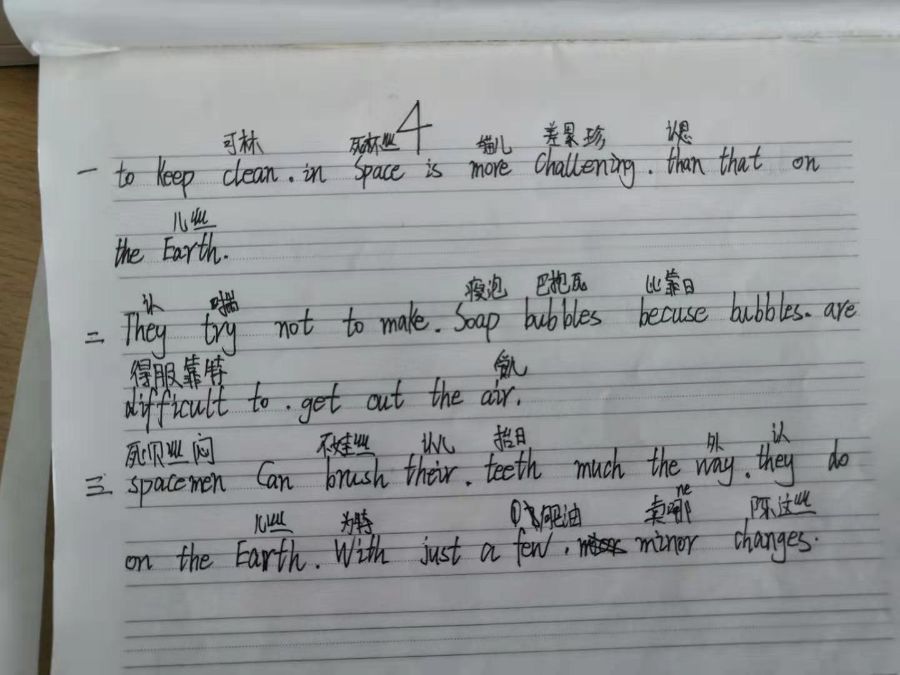 4
可林 死杯丝 猫儿 差累珍 认恩
一 to keep clean. in space is more challening. than that on
儿丝
the Earth.
认 踹 瘦泡 巴抱瓦 比靠日
二 They try not to make. Soap bubbles becuse bubbles. are
得服靠特
difficult to. get out the air.
死贝丝闷 不娃丝 认儿 抬日 外 认
三 spacemen Can brush their. teeth much the way. they do
儿丝 为特 肥油 卖哪 ne 陈这丝
on the Earth. With just a few. minor changes.